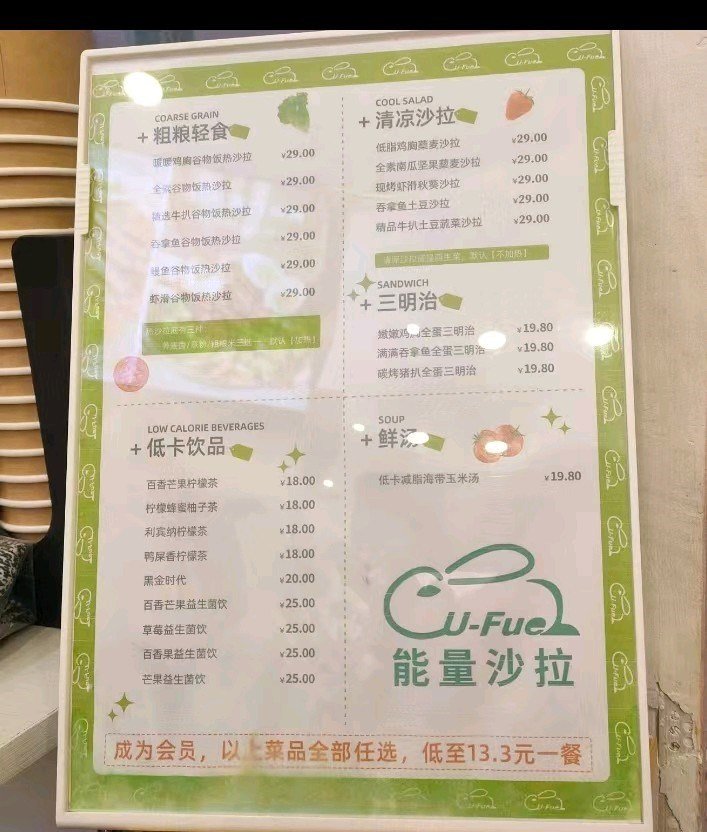 COARSE GRAIN
+ 粗粮轻食
暖暖鸡胸谷物饭热沙拉 ¥29.00
全素谷物饭热沙拉 ¥29.00
精选牛扒谷物饭热沙拉 ¥29.00
吞拿鱼谷物饭热沙拉 ¥29.00
鳗鱼谷物饭热沙拉 ¥29.00
虾滑谷物饭热沙拉 ¥29.00
热沙拉底有三种
荞麦面/意粉/粗粮米三选一，默认【加热】
COOL SALAD
+ 清凉沙拉
低脂鸡胸藜麦沙拉 ¥29.00
全素南瓜坚果藜麦沙拉 ¥29.00
现烤虾滑秋葵沙拉 ¥29.00
吞拿鱼土豆沙拉 ¥29.00
精品牛扒土豆蔬菜沙拉 ¥29.00
生菜，默认【不加热】
SANDWICH
+ 三明治
嫩嫩鸡胸全蛋三明治 ¥19.80
满满吞拿鱼全蛋三明治 ¥19.80
碳烤猪扒全蛋三明治 ¥19.80
LOW CALORIE BEVERAGES
+ 低卡饮品
百香芒果柠檬茶 ¥18.00
柠檬蜂蜜柚子茶 ¥18.00
利宾纳柠檬茶 ¥18.00
鸭屎香柠檬茶 ¥18.00
黑金时代 ¥20.00
百香芒果益生菌饮 ¥25.00
草莓益生菌饮 ¥25.00
百香果益生菌饮 ¥25.00
芒果益生菌饮 ¥25.00
SOUP
+ 鲜汤
低卡减脂海带玉米汤 ¥19.80
U-Fuel
能量沙拉
成为会员，以上菜品全部任选，低至13.3元一餐